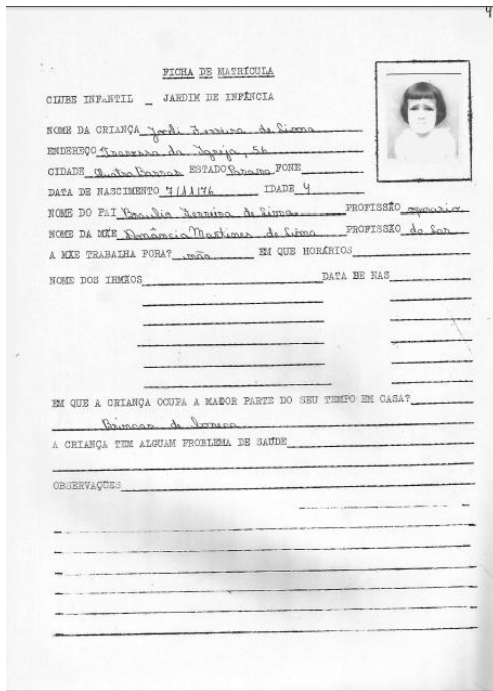 FICHA DE MATRÍCULA
CLUBE INFANTIL _ JARDIM DE INFÂNCIA
NOME DA CRIANÇA Jordi Ferreira de Lima
ENDEREÇO Travessa da Igreja, 56
CIDADE Quatro Barras ESTADO Paraná FONE
DATA DE NASCIMENTO 7/11/76 IDADE 4
NOME DO PAI Braulio Ferreira de Lima PROFISSÃO operario
NOME DA MÃE Amância Martines de Lima PROFISSÃO do lar
A MÃE TRABALHA FORA? não EM QUE HORÁRIOS
NOME DOS IRMÃOS DATA DE NAS
EM QUE A CRIANÇA OCUPA A MAIOR PARTE DO SEU TEMPO EM CASA?
Brincar de boneca
A CRIANÇA TEM ALGUAM PROBLEMA DE SAÚDE
OBSERVAÇÕES